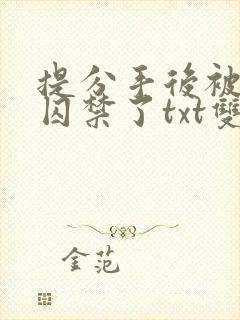 提分手後被
囚禁了txt雙
金范